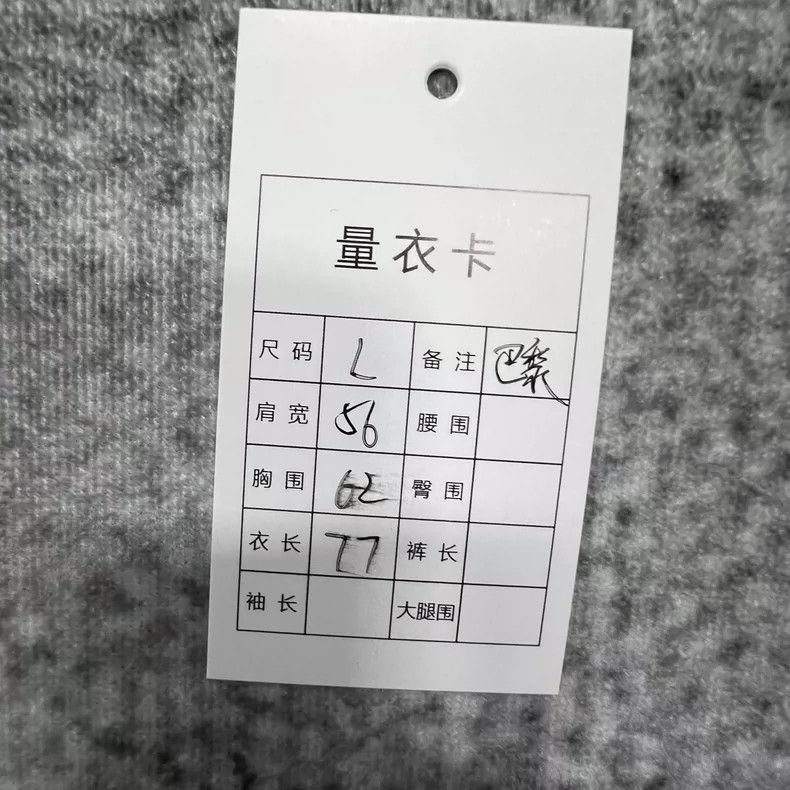 量衣卡
尺码 L 备注
肩宽 56 腰围
胸围 62 臀围
衣长 77 裤长
袖长 大腿围